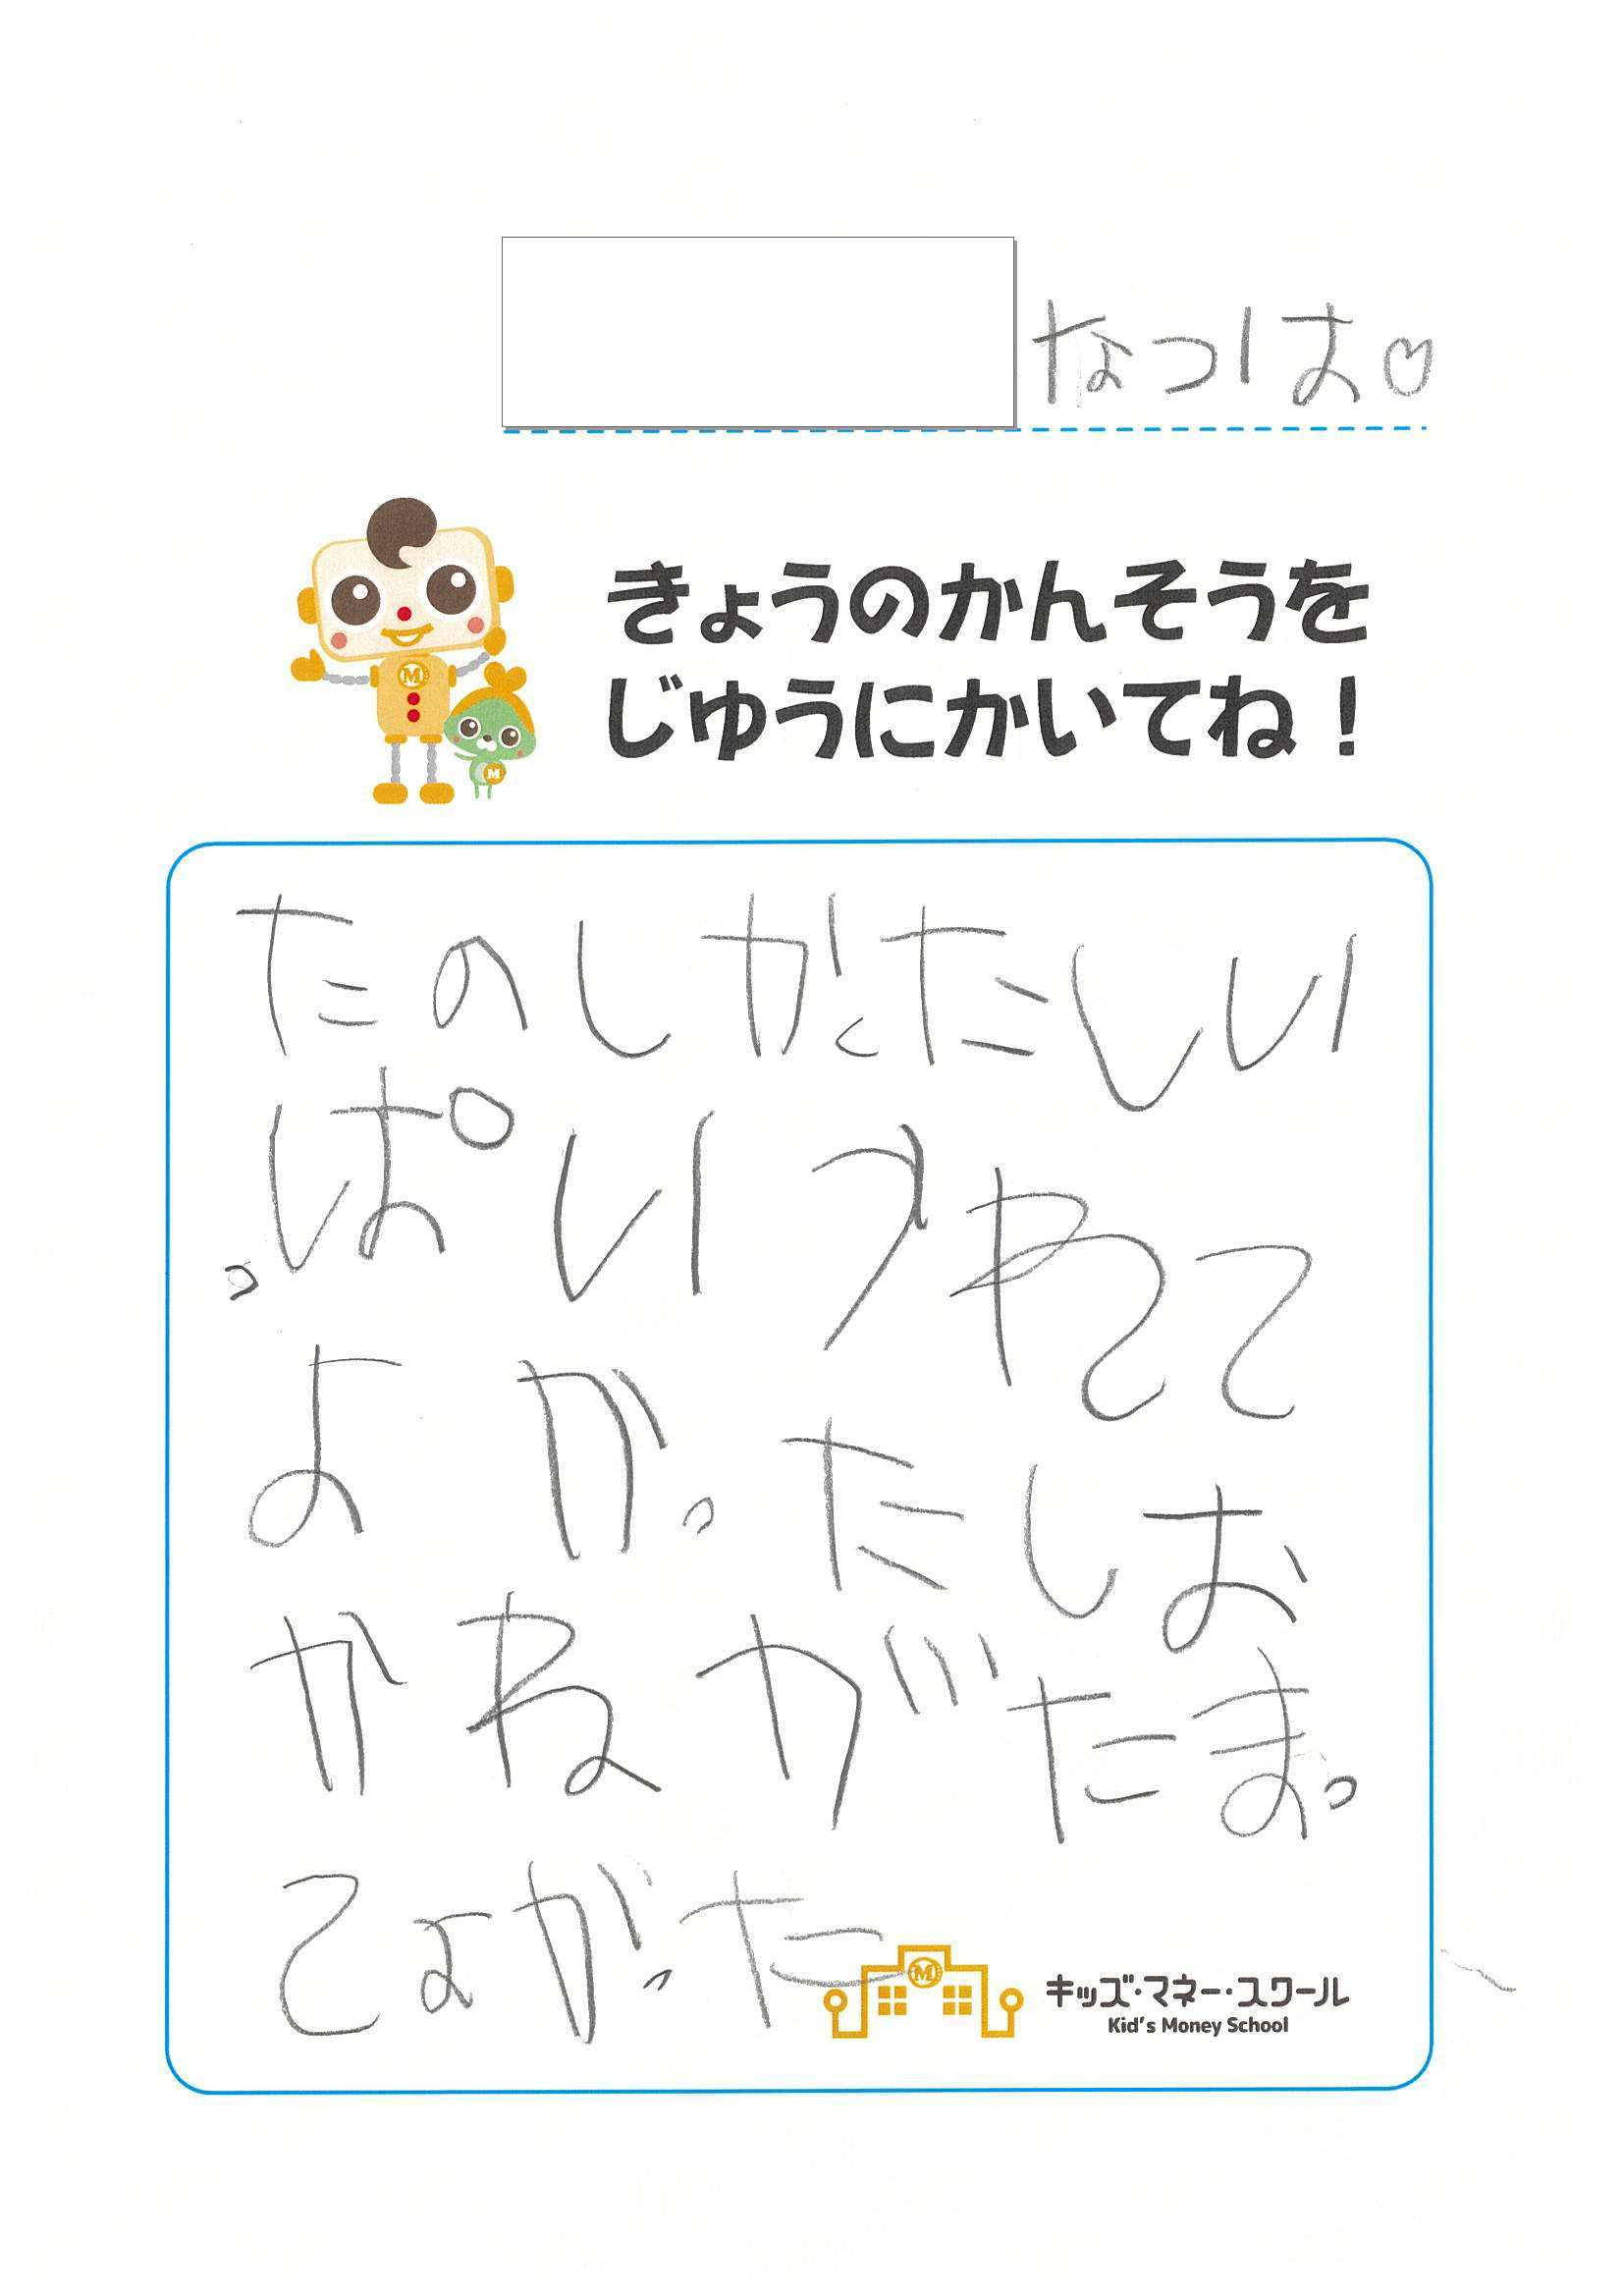 なつは♡
きょうのかんそうを
じゅうにかいてね！
たのしかったしい
っぱいうれて
よかったしお
かねがたまっ
てよかった
キッズ・マネー・スクール
Kid's Money School